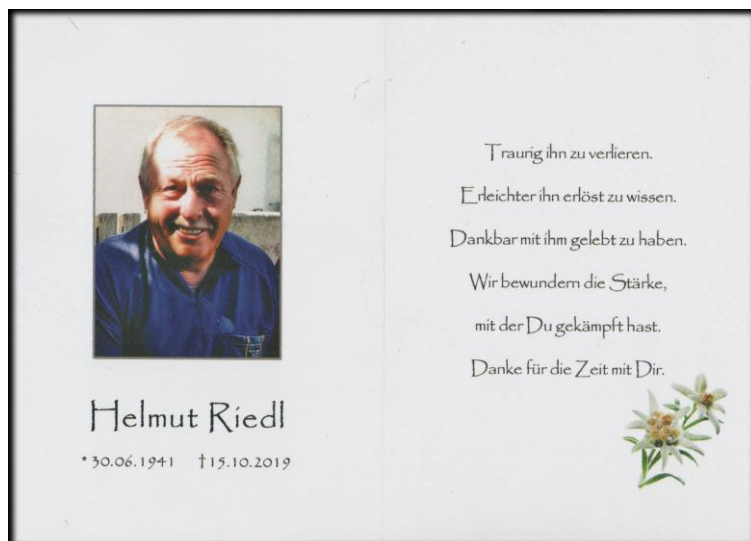 Helmut Riedl
* 30.06.1941 † 15.10.2019
Traurig ihn zu verlieren.
Erleichter ihn erlöst zu wissen.
Dankbar mit ihm gelebt zu haben.
Wir bewundern die Stärke,
mit der Du gekämpft hast.
Danke für die Zeit mit Dir.